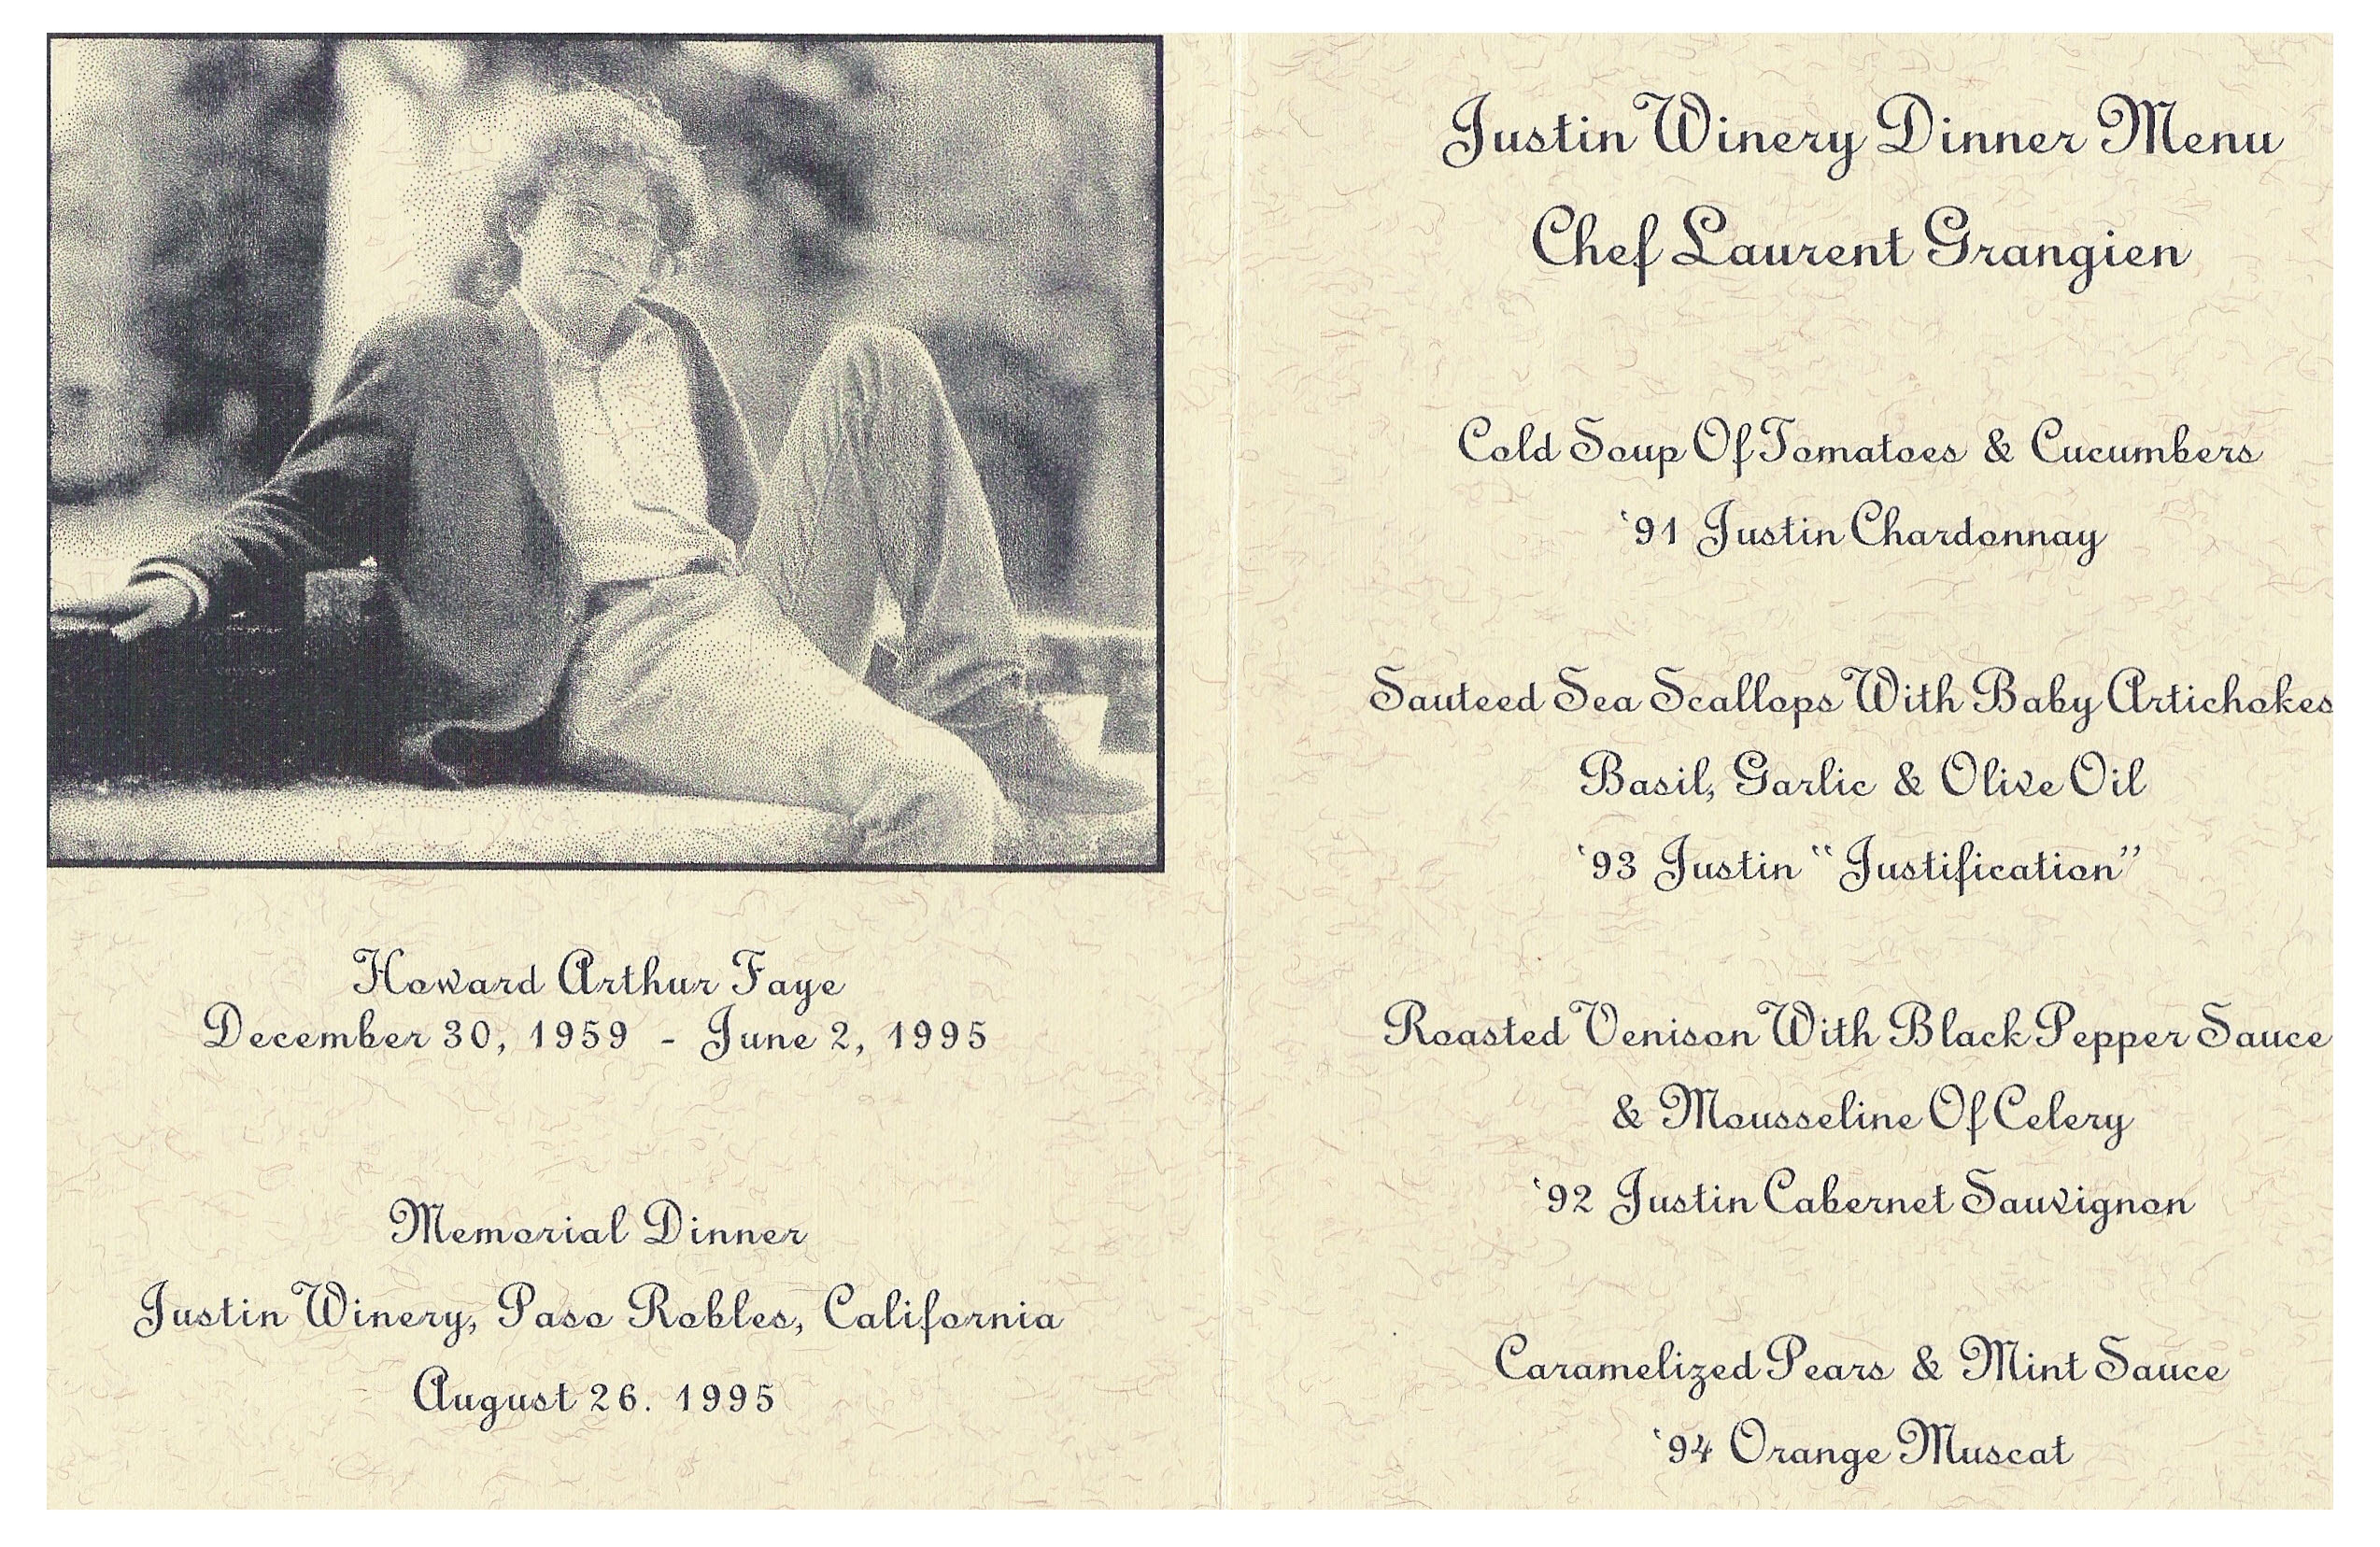 Howard Arthur Faye
December 30, 1959 - June 2, 1995
Memorial Dinner
Justin Winery, Paso Robles, California
August 26. 1995
Justin Winery Dinner Menu
Chef Laurent Grangien
Cold Soup Of Tomatoes & Cucumbers
‘91 Justin Chardonnay
Sauteed Sea Scallops With Baby Artichokes
Basil, Garlic & Olive Oil
‘93 Justin “Justification”
Roasted Venison With Black Pepper Sauce
& Mousseline Of Celery
‘92 Justin Cabernet Sauvignon
Caramelized Pears & Mint Sauce
‘94 Orange Muscat